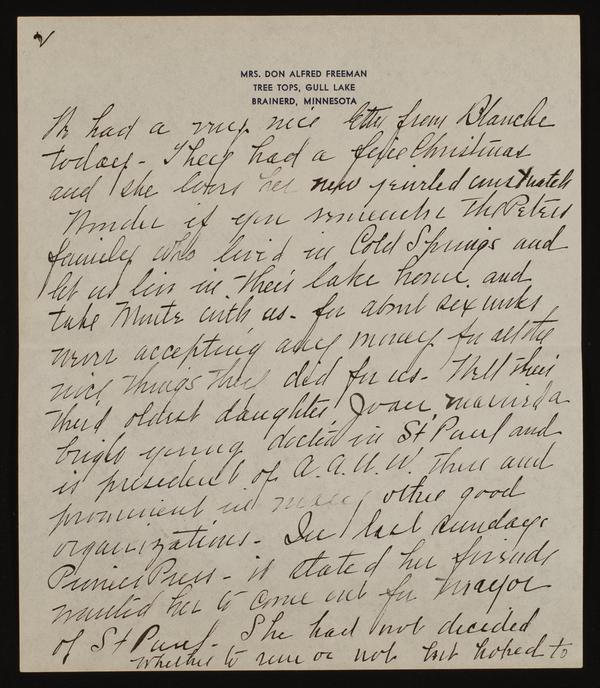 MRS. DON ALFRED FREEMAN
TREE TOPS, GULL LAKE
BRAINERD, MINNESOTA
We had a very nice letter from Blanche
today - They had a fine Christmas
and she loves her new jeweled wrist watch
Wonder if you remember the Peters
family who lived in Cold Springs and
let us live in their lake home and
take Monte with us - for about six weeks
never accepting any money for all the
nice things they did for us - Well their
third oldest daughter Joan, married a
bright young doctor in St Paul and
is president of A.A.U.W. there and
prominent in many other good
organizations - In last Sundays
Pioneer Press - it stated her friends
wanted her to come out for Mayor
of St Paul - She had not decided
whether to run or not but hoped to